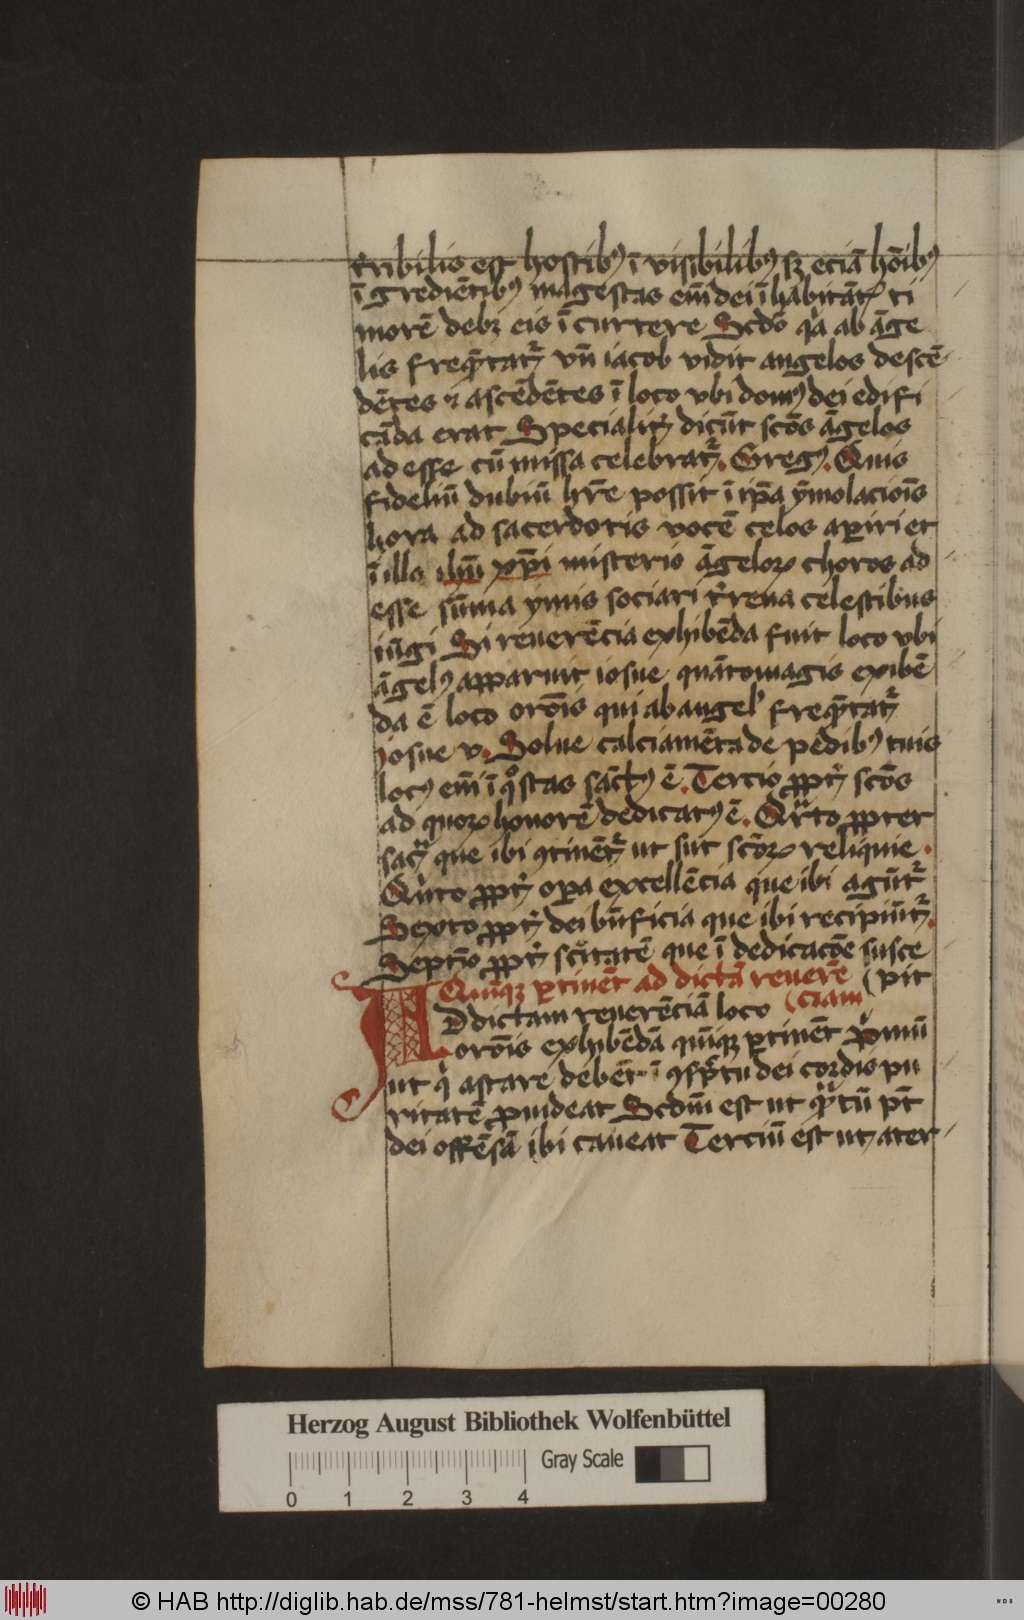 t͛ribilis est hostibꝰ ī visibilibꝰ sꝫ eciā hōībꝰ
ī gredieētibꝰ magestas em̄ dei īhabitāt͛ ti
morē debꝫ eis ī curtere Scdō q͛a ab āge
lis freq̄ntat͛ vn̄ iacob vidit angelos descē
dētes ⁊ ascēdētes ī loco vbi domꝰ dei edifi
cāda erat Specialit͛ dicūt scōs āgelos
ad esse cū missa celebrat͛. Gregꝰ. Quis
fideliū dubiū hr̄e possit ī ip̄a ẏmolaciōis
hora ad sacerdotis vocē celos aꝑiri et
ī illo ihū xp̄i misterio āgeloꝝ choros ad
esse sūma ymis sociari t͛rena celestibus
iūgi Si reuerēcia exhibēda fuit loco vbi
āgelꝰ apparuit iosue quātomagis exibē
da ē loco orōis qui ab angel' freq̄ntat͛
iosue v. Solue calciamēta de pedibꝰ tuis
locꝰ em̄ ī qͦ stas sāctꝰ ē. Tercio ꝓpt͛ scōs
ad quoꝝ honorē dedicatꝰ ē. Qͣrto ꝓpter
sac͛ que ibi ꝯtinēt͛ ut sūt scōꝝ reliquie.
Qͥnto ꝓpt͛ oꝑa excellēcia que ibi agūt͛
Sexto ꝓpt͛ dei bn̄ficia que ibi recipiūt͛.
Septīo ꝓpt͛ sc̄itatē que ī dedicacōe susce
Quīqꝫ ꝑtinēt ad dictā reuerē (pit
Ad dictam reuerēciā loco (ciam
orōis exhibēdā quīqꝫ ꝑtinēt Pͥmū
ut qͥ astare debēt ī ꝯsp̄ctu dei cordis pu
ritatē ꝓuideat Scdm̄ est ut qͣtū pt̄
dei offēsā ibi caueat Terciū est ut ater
Herzog August Bibliothek Wolfenbüttel
Gray Scale
0 1 2 3 4
© HAB http://diglib.hab.de/mss/781-helmst/start.htm?image=00280